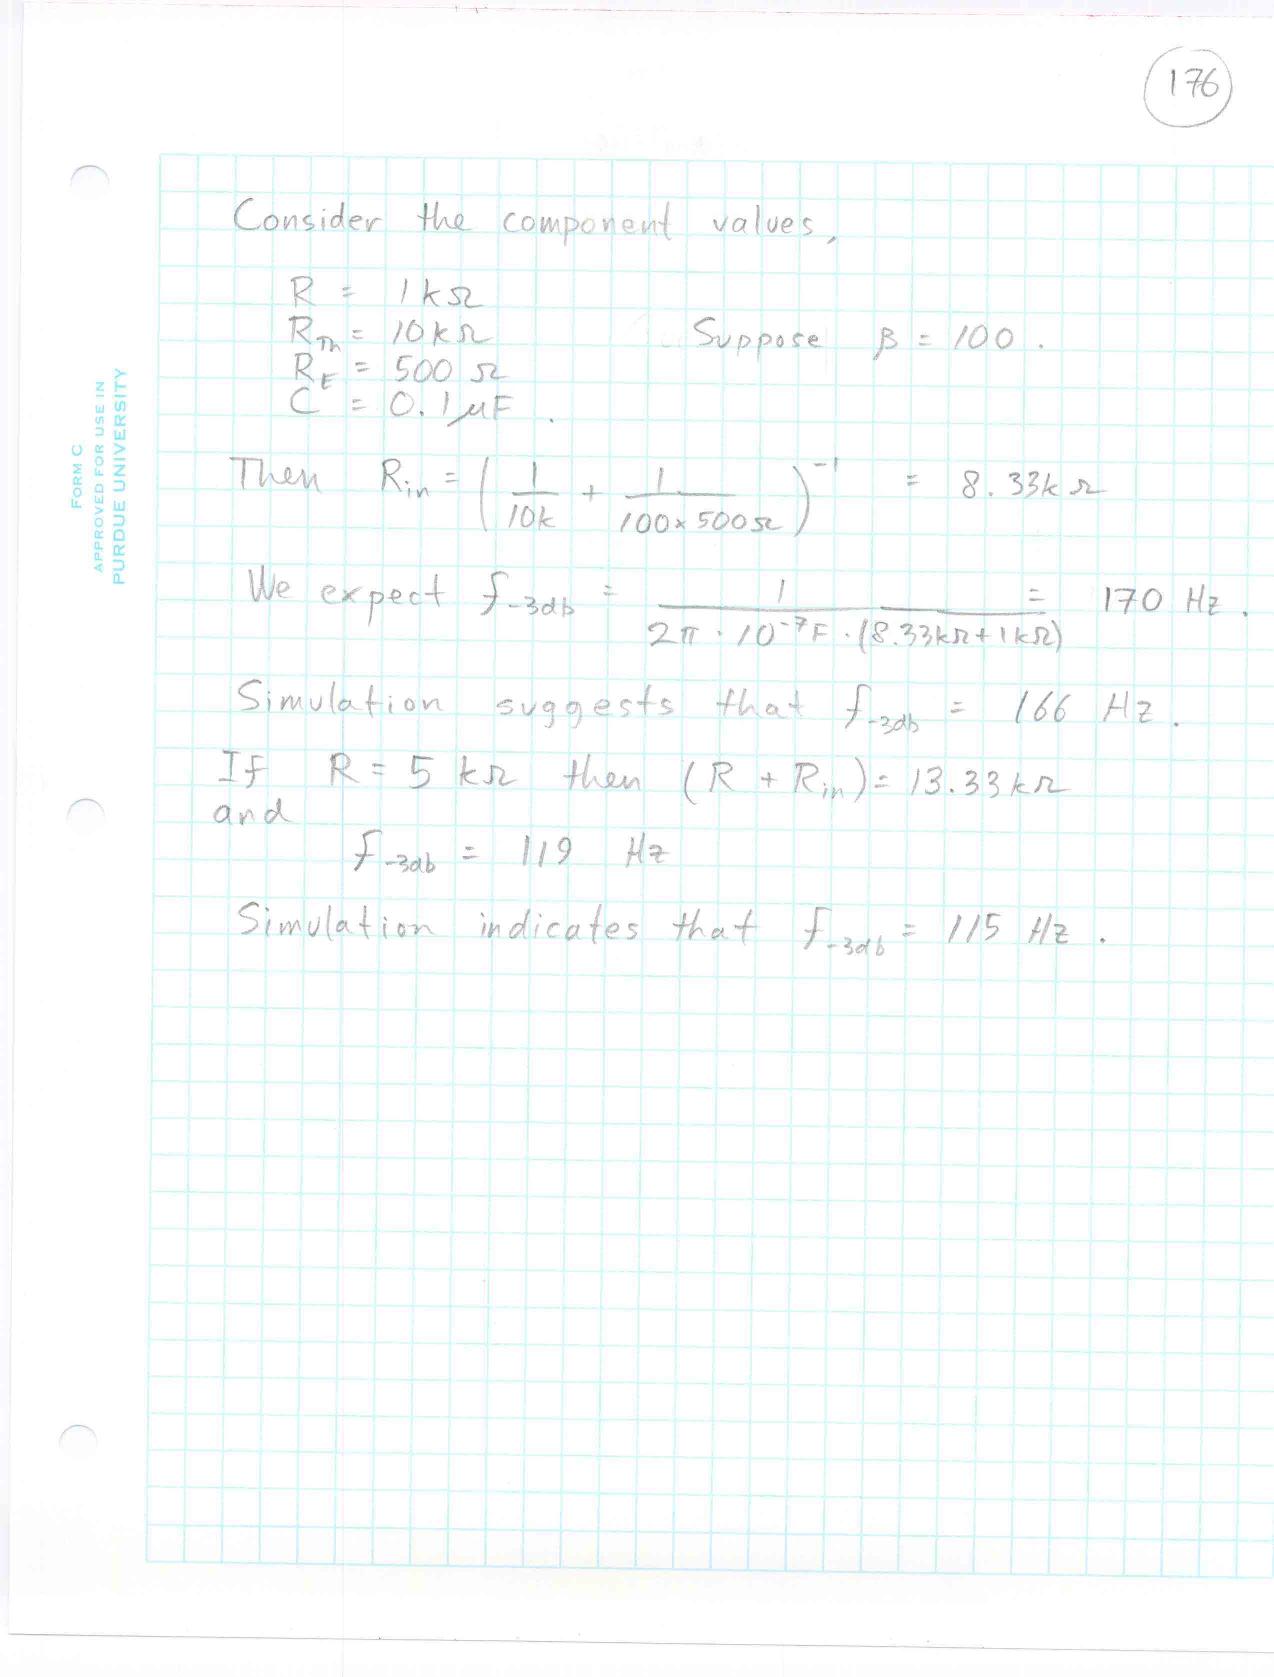 176
FORM C
APPROVED FOR USE IN
PURDUE UNIVERSITY
Consider the component values,
R = 1kΩ
R_Th = 10kΩ
Suppose β = 100.
R_E = 500 Ω
C = 0.1μF.
Then R_in = (1/10k + 1/100×500Ω)^-1 = 8.33kΩ
We expect f_-3db = 1/2π · 10^-7F · (8.33kΩ+1kΩ) = 170 Hz.
Simulation suggests that f_-3db = 166 Hz.
If R = 5 kΩ then (R + R_in) = 13.33kΩ
and
f_-3db = 119 Hz
Simulation indicates that f_-3db = 115 Hz.